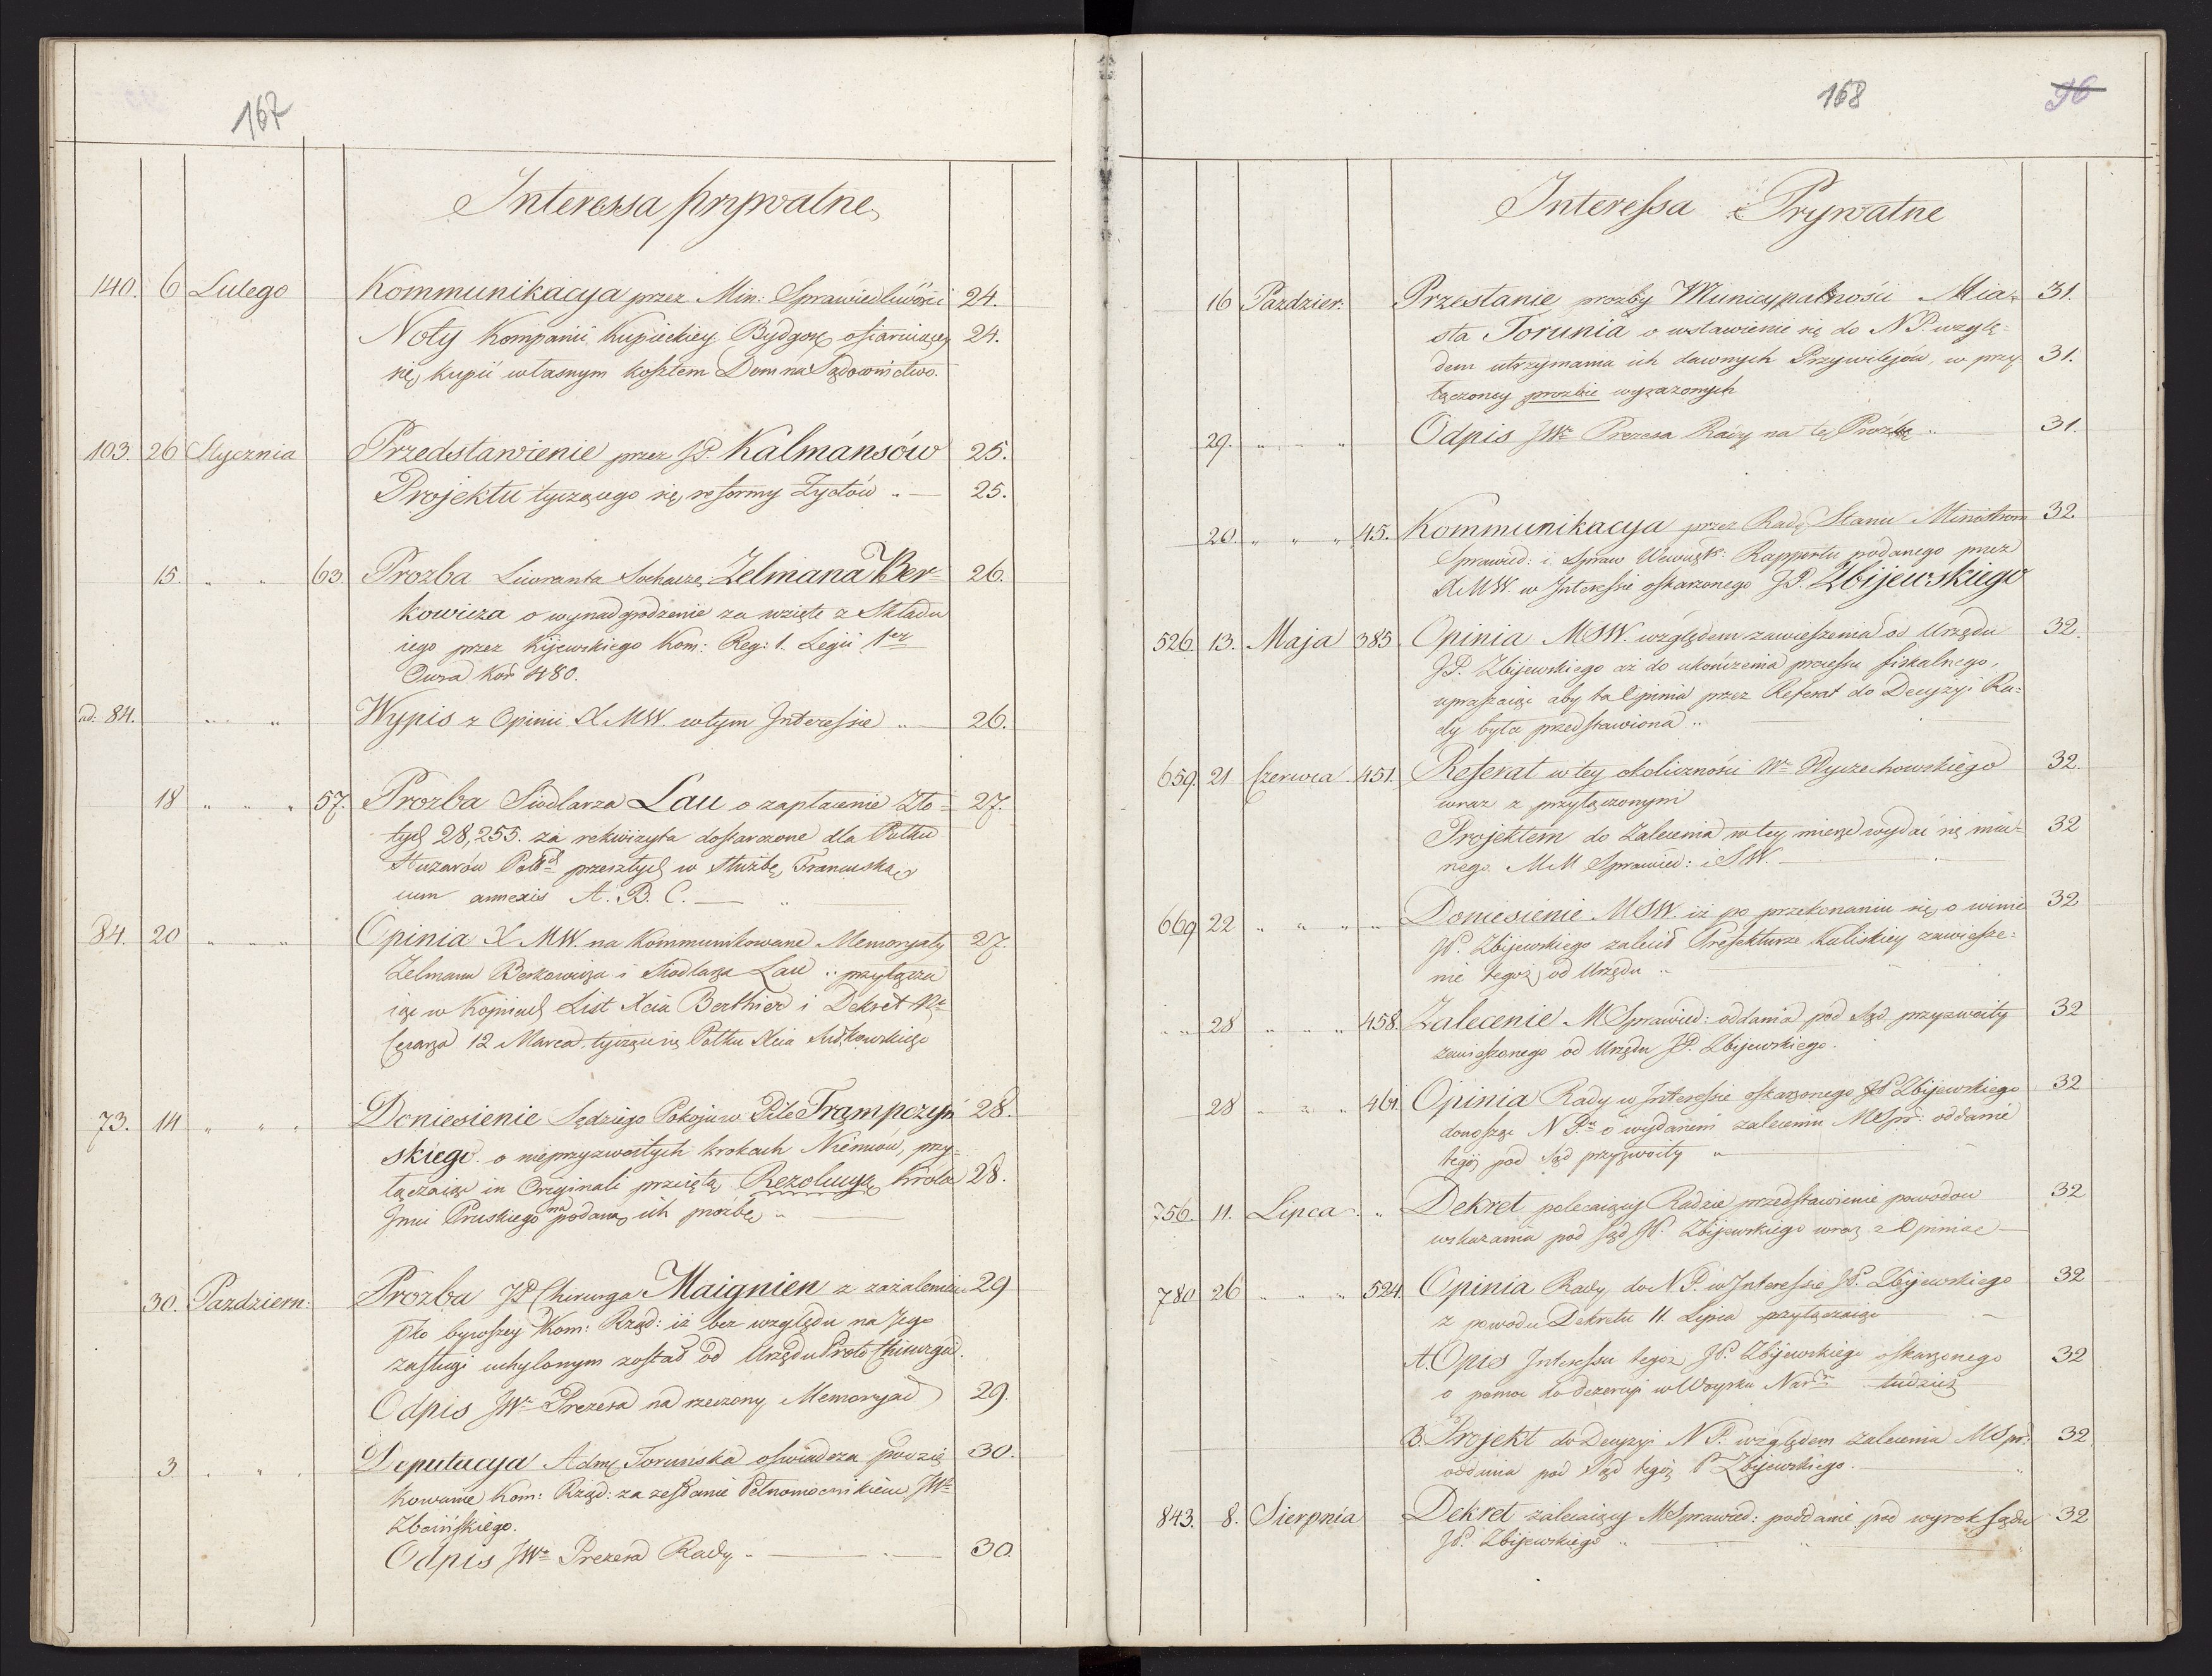 167
Interessa prywatne
140. 6 Lutego Kommunikacya przez Min: Sprawiedliwości 24.
Noty Kompanii Kupieckiey Bydgos ofiaruiącey 24.
się, kupić własnym kosztem Dom na Sądownictwo.
103. 26 Stycznia Przedstawienie przez JP. Kalmansów 25.
Projektu tyczącego się reformy Zydów „ — 25.
15. „ „ 63. Prozba Liweranta Sochacze, Zelmana Ber= 26.
kowicza o wynadgrodzenie za wzięte z Składu
iego przez Kijewskiego Kom: Reg: 1. Legii
Owsa Kor 480.
ad: 84. „ „ Wypis z Opinii X MW. w tym Interessie „ — 26.
18 „ „ „ 57. Prozba Siodlarza Lau o zapłacenie Zło= 27.
tych 28,255. za rekwizyta dostarczone dla Pułku
Huzarów przeszłych w służbę Francuską
cum annexis A. B. C. —
84. 20 „ „ „ Opinia X MW. na kommunikowane Memoryały 27.
Zelmana Berkowicza i Siodlarza Lau „ przyłącza
iąc w Kopiach List Xcia Berthier i Dekret
Cesarza 12 Marca tyczący się Pułku Xcia Sułkowskiego
73. 14 „ „ „ Doniesienie Sędziego Pokoju w Pile Trąmpczyń 28.
skiego. o nieprzyzwoitych krokach Niemców, przy=
łączaiąc in Originali przeiętą Rezolucyą Króla 28.
Jmci Pruskiego na podaną ich prozbę „ —
30. Pazdziern: Prozba JP Chirurga Maignien z zażaleniem 29
pko bywszey Kom: Rząd: iż bez względu na Jego
zasługi uchylonym został od Urzędu Proto Chirurga.
Odpis JWo Prezesa na rzeczony Memoryał 29.
3 „ „ „ Deputacya Adm: Toruńska oświadcza podzię 30.
kowanie Kom: Rząd: za zesłanie Pełnomocnikiem JWo
Zboińskiego.
Odpis JWo Prezesa Rady „ — 30.
168 96
Interessa Prywatne
16 Pazdzier: Przesłanie prozby Municypalności Mia= 31.
sta Torunia o wstawienie się do N P. wzglę=
dem utrzymania ich dawnych Przywilejów, w przy 31.
łączoney prozbie wyrazonych
29. „ „ „ Odpis JWo Prezesa Rady na tę Prozbę „ 31.
20. „ „ „ 45. Kommunikacya przez Radę Stanu Ministrom 32.
Sprawied: i Spraw Wewnętr: Rapportu podanego przez
XMW. w Interessie oskarzonego JP. Zbijewskiego
526. 13. Maja 385. Opinia MSW. względem zawieszenia od Urzędu 32.
JP. Zbijewskiego aż do ukończenia processu fiskalnego,
upraszaiąc aby ta Opinia przez Referat do Decyzyi Ra=
dy była przedstawiona „
659. 21 Czerwca 451. Referat w tey okoliczności Wo Wyczechowskiego 32.
wraz z przyłączonym
Projektem do Zalecenia w tey mierze wydać się mia= 32
nego MM Sprawied: i SW. —
669 22 „ „ „ „ Doniesienie MSW. iż po przekonaniu się o winie 32
JP. Zbijewskiego zalecił Prefekturze Kaliskiey zawiesze=
nie tegoż od Urzędu „ —
„ „ 28 „ „ „ 458. Zalecenie MSprawied: oddania pod Sąd przyzwoity 32
zawieszonego od Urzędu JP. Zbijewskiego.
28 „ „ „ 461. Opinia Rady w Interessie oskarzonego JP Zbijewskiego 32
donosząc N P. o wydaniem zaleceniu MSpr: oddanie
tegoż pod Sąd przyzwoity „ —
756. 11. Lipca „ Dekret polecaiący Radzie przedstawienie powodów 32
wskazania pod sąd JP. Zbijewskiego wraz z Opinią —
780 26 „ „ „ 524. Opinia Rady do N P. w Interessie JP. Zbijewskiego 32
z powodu Dekretu 11. Lipca przyłączaiąc —
A. Opis Interessu tegoż JP. Zbijewskiego oskarzonego 32
o pomoc do dezercyi w Woysku tudzież
B. Projekt do Decyzyi N P. względem zalecenia MSpr: 32
oddania pod Sąd tegoż P Zbijewskiego. —
843. 8. Sierpnia Dekret zalecaiący MSprawied: poddanie pod wyrok sądu 32
JP. Zbijewskiego „ —